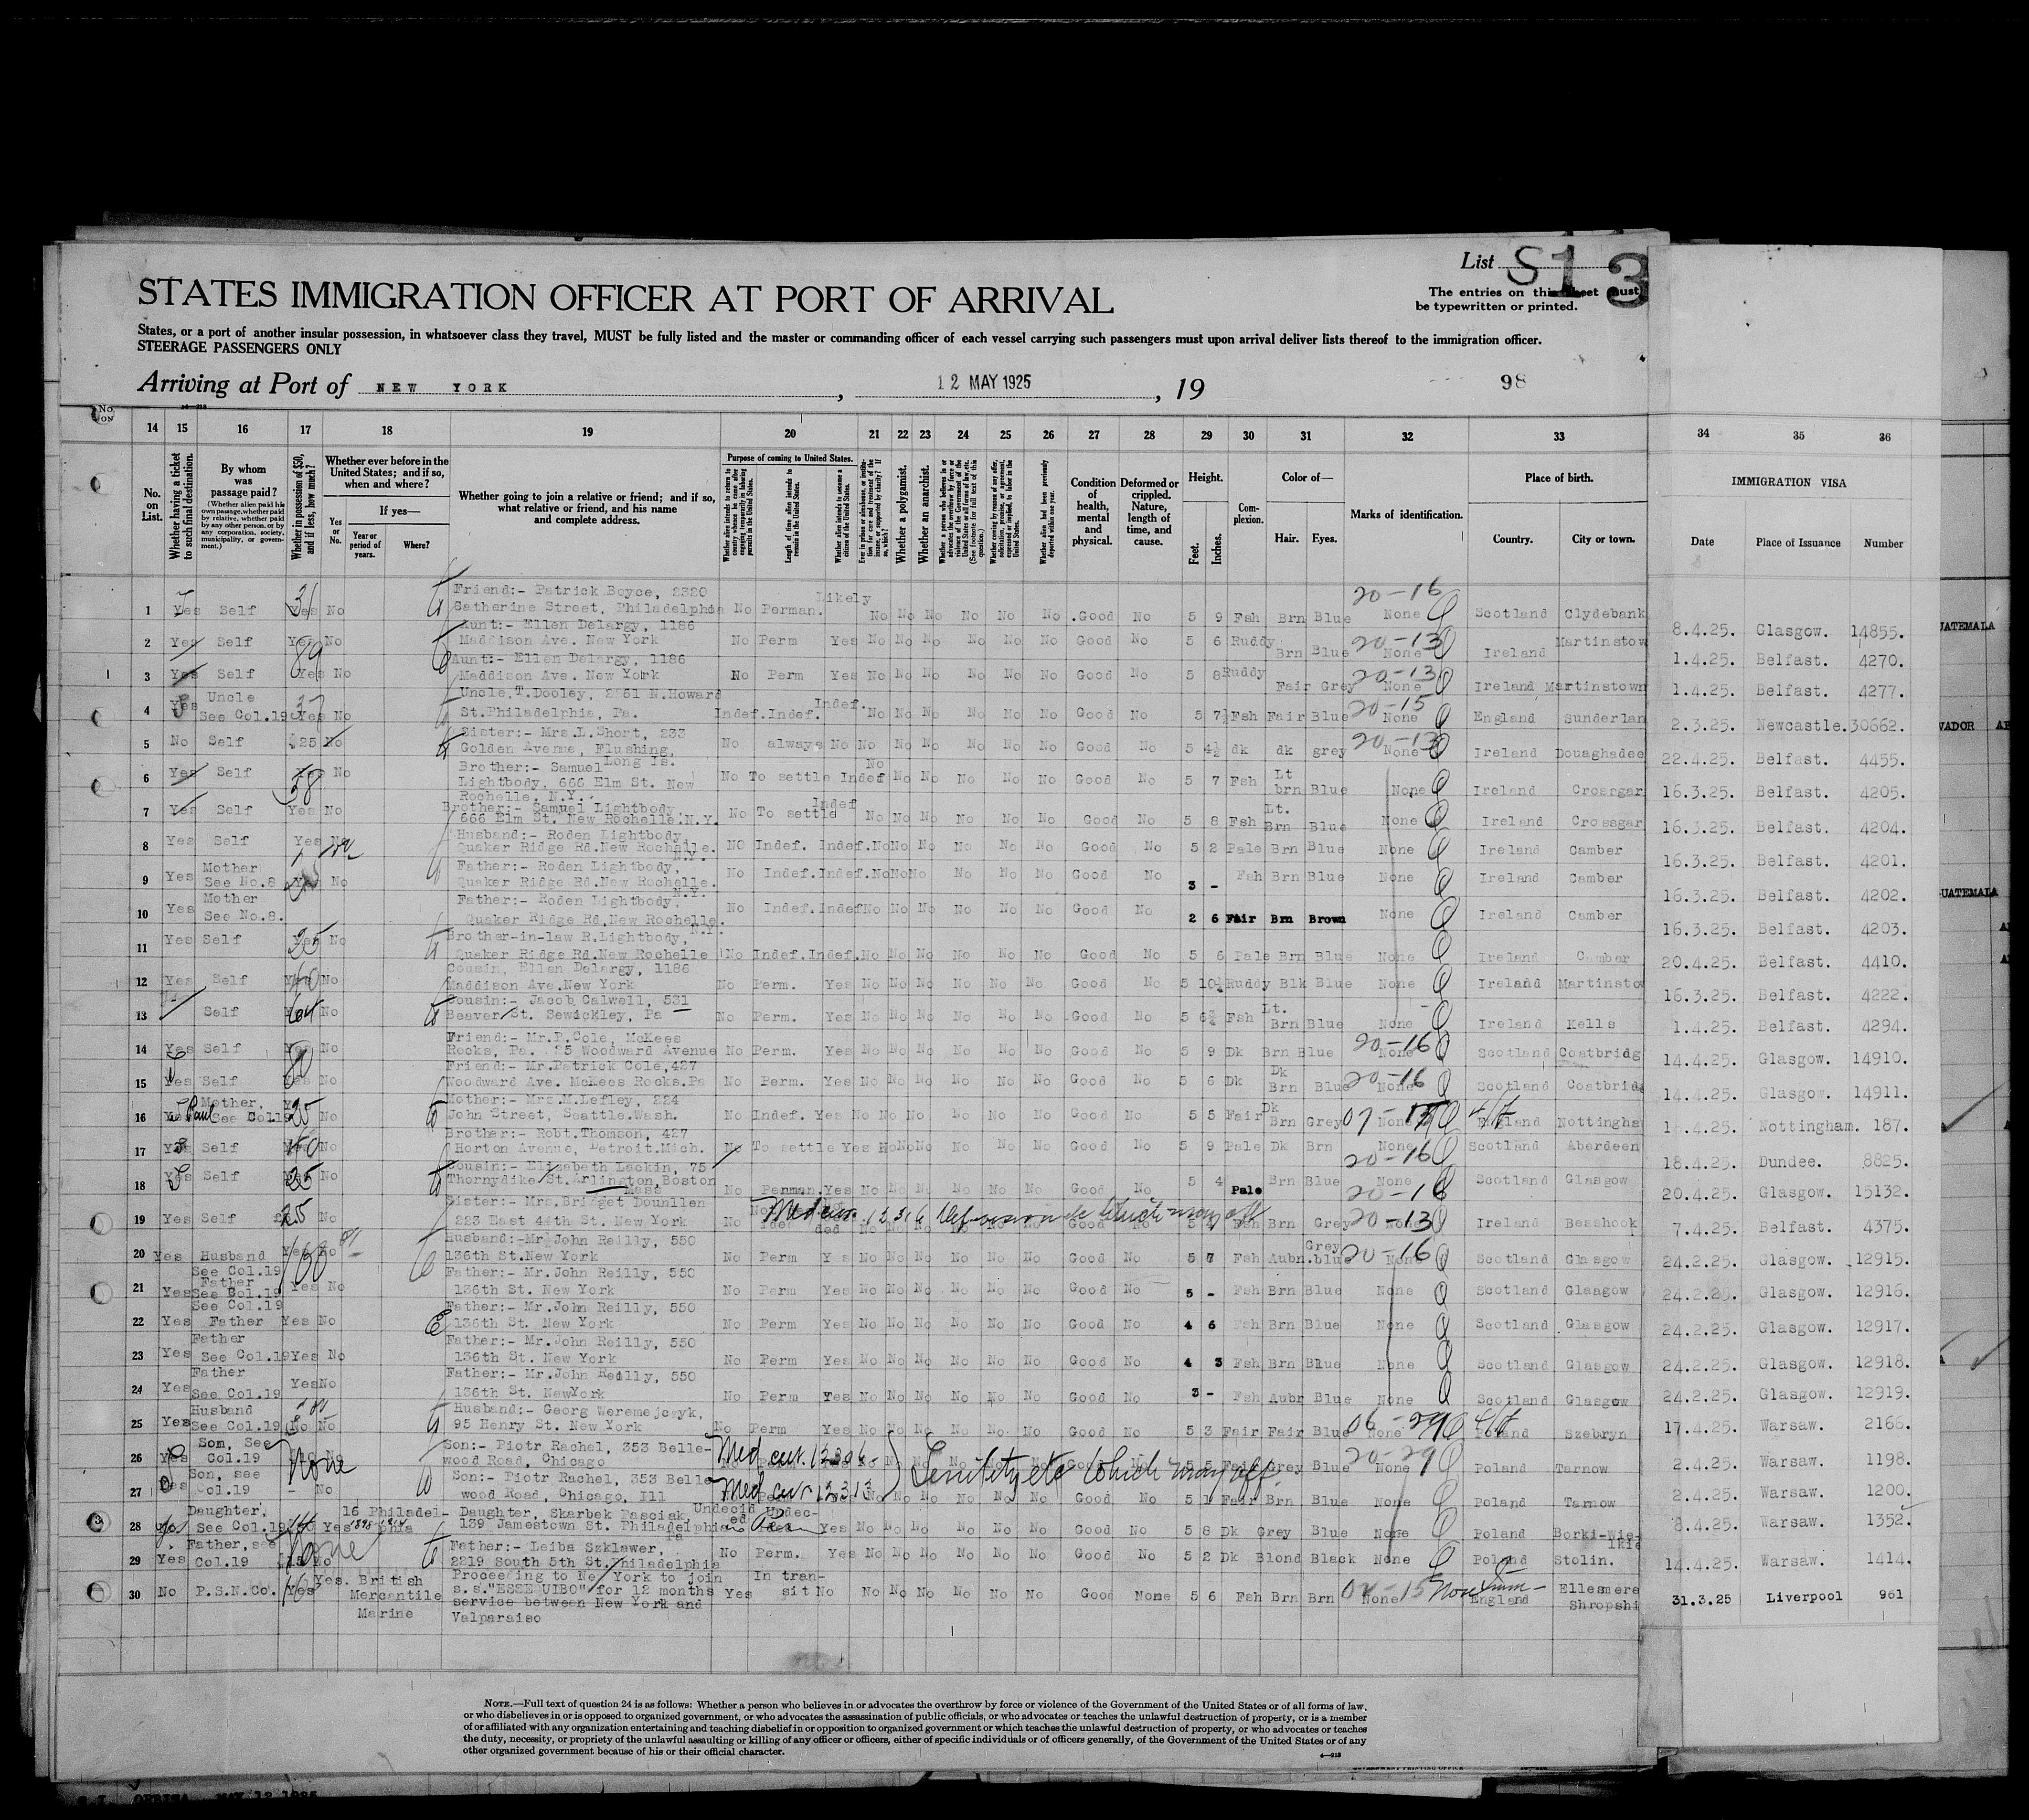 List S13
STATES IMMIGRATION OFFICER AT PORT OF ARRIVAL
The entries on this sheet must be typewritten or printed.
States, or a port of another insular possession, in whatsoever class they travel, MUST be fully listed and the master or commanding officer of each vessel carrying such passengers must upon arrival deliver lists thereof to the immigration officer.
STEERAGE PASSENGERS ONLY
Arriving at Port of NEW YORK , 12 MAY 1925 , 19 98
14 15 16 17 18 19 20 21 22 23 24 25 26 27 28 29 30 31 32 33 34 35 36
No. on List.
Whether having a ticket to such final destination.
By whom was passage paid?
(Whether alien paid his own passage, whether paid by relative, whether paid by any other person, or by any corporation, society, municipality, or government.)
Whether in possession of $50, and if less, how much?
Whether ever before in the United States; and if so, when and where?
Yes or No.
If yes—
Year or period of years.
Where?
Whether going to join a relative or friend; and if so, what relative or friend, and his name and complete address.
Purpose of coming to United States.
Length of time alien intends to remain in the United States.
Whether alien intends to become a citizen of the United States.
Whether a polygamist.
Whether an anarchist.
Condition of health, mental and physical.
Deformed or crippled. Nature, length of time, and cause.
Height.
Feet.
Inches.
Complexion.
Color of—
Hair.
Eyes.
Marks of identification.
Place of birth.
Country.
City or town.
IMMIGRATION VISA
Date
Place of Issuance
Number
1 Yes Self Yes No Friend:- Patrick Boyce, 2320 Catherine Street, Philadelphia No Perman. Likely No No No No No No Good No 5 9 Fsh Brn Blue 20-16 None Scotland Clydebank 8.4.25. Glasgow. 14855.
2 Yes Self Yes No Aunt:- Ellen Delargy, 1186 Maddison Ave. New York No Perm Yes No No No No No No Good No 5 6 Ruddy Brn Blue 20-13 None Ireland Martinstow 1.4.25. Belfast. 4270.
3 Yes Self Yes No Aunt:- Ellen Delargy, 1186 Maddison Ave. New York No Perm Yes No No No No No No Good No 5 8 Ruddy Fair Grey 20-13 None Ireland Martinstown 1.4.25. Belfast. 4277.
4 Yes Uncle See Col.19 Yes No Uncle,T.Dooley, 2861 N.Howard St.Philadelphia, Pa. Indef. Indef. Indef. No No No No No No Good No 5 7½ Fsh Fair Blue 20-15 None England Sunderlan 2.3.25. Newcastle. 30662.
5 No Self $25 No Sister:- Mrs.L.Short, 233 Golden Avenue, Flushing, Long Is. No always No No No No No No No Good No 5 4½ dk dk grey 20-13 None Ireland Douaghadee 22.4.25. Belfast. 4455.
6 Yes Self Yes 58 No Brother:- Samuel Lightbody, 666 Elm St. New Rochelle, N.Y. No To settle Indef No No No No No No Good No 5 7 Fsh Lt brn Blue None Ireland Crossgar 16.3.25. Belfast. 4205.
7 Yes Self Yes No Brother:- Samuel Lightbody, 666 Elm St. New Rochelle.N.Y. No To settle Indef No No No No No No Good No 5 8 Fsh Lt. Brn Blue None Ireland Crossgar 16.3.25. Belfast. 4204.
8 Yes Self Yes Husband:- Roden Lightbody, Quaker Ridge Rd.New Rochelle. N.Y. NO Indef. Indef. No No No No No No Good No 5 2 Pale Brn Blue None Ireland Camber 16.3.25. Belfast. 4201.
9 Yes Mother See No.8 Yes No Father:- Roden Lightbody, Quaker Ridge Rd.New Rochelle. N.Y. No Indef. Indef. No No No No No No Good No 3 - Fsh Brn Blue None Ireland Camber 16.3.25. Belfast. 4202.
10 Yes Mother See No.8. Father:- Roden Lightbody, Quaker Ridge Rd,New Rochelle. N.Y. No Indef. Indef No No No No No No Good No 2 6 Fair Brn Brown None Ireland Camber 16.3.25. Belfast. 4203.
11 Yes Self Yes No Brother-in-law R.Lightbody, Quaker Ridge Rd.New Rochelle No Indef. Indef. No No No No No No Good No 5 6 Pale Brn Blue None Ireland Camber 20.4.25. Belfast. 4410.
12 Yes Self Yes No Cousin, Ellen Delargy, 1186 Maddison Ave.New York No Perm. Yes No No No No No No Good No 5 10½ Ruddy Blk Blue None Ireland Martinsto 16.3.25. Belfast. 4222.
13 Self Yes No Cousin:- Jacob Calwell, 531 Beaver St. Sewickley, Pa No Perm. Yes No No No No No No Good No 5 6¾ Fsh Lt. Brn Blue None Ireland Kells 1.4.25. Belfast. 4294.
14 Yes Self Yes No Friend:- Mr.P.Cole, McKees Rocks, Pa. 25 Woodward Avenue No Perm. Yes No No No No No No Good No 5 9 Dk Brn Blue 20-16 None Scotland Coatbridg 14.4.25. Glasgow. 14910.
15 Yes Self Yes No Friend:- Mr.Patrick Cole,427 Woodward Ave. McKees Rocks.Pa No Perm. Yes No No No No No No Good No 5 6 Dk Dk Brn Blue 20-16 None Scotland Coatbridg 14.4.25. Glasgow. 14911.
16 Yes Mother, See Col.19 25 No Mother:- Mrs.M.Lefley, 224 John Street, Seattle.Wash. No Indef. Yes No No No No No No Good No 5 5 Fair Dk Brn Grey None England Nottingha .4.25. Nottingham. 187.
17 Yes Self No Brother:- Robt.Thomson, 427 Horton Avenue, Detroit.Mich. No To settle Yes No No No No No No Good No 5 9 Pale Dk Brn None 20-16 Scotland Aberdeen 18.4.25. Dundee. 8825.
18 Yes Self 25 No Cousin:- Elizabeth Lackin, 75 Thornydike St.Arlington,Boston Mass No Perman. Yes No No No No No No Good No 5 4 Pale Brn Blue None 20-16 Scotland Glasgow 20.4.25. Glasgow. 15132.
19 Yes Self 25 No Sister:- Mrs.Bridget Dounllen 223 East 48th St. New York No Med cer. 12316 which may aff Good 5 Fsh Brn Grey 20-13 None Ireland Besshook 7.4.25. Belfast. 4375.
20 Yes Husband See Col.19 Yes No Husband:-Mr John Reilly, 550 136th St.New York No Perm Yes No No No No No No Good No 5 7 Fsh Aubn. Grey blue 20-16 None Scotland Glasgow 24.2.25. Glasgow. 12915.
21 Yes Father See Col.19 Yes No Father:- Mr.John Reilly, 550 136th St. New York No Perm Yes No No No No No No Good No 5 - Fsh Brn Blue None Scotland Glasgow 24.2.25. Glasgow. 12916.
22 Yes See Col.19 Father Yes No Father:- Mr.John Reilly, 550 136th St. New York No Perm Yes No No No No No No Good No 4 6 Fsh Brn Blue None Scotland Glasgow 24.2.25. Glasgow. 12917.
23 Yes Father See Col.19 Yes No Father:- Mr.John Reilly, 550 136th St. New York No Perm Yes No No No No No No Good No 4 3 Fsh Brn Blue None Scotland Glasgow 24.2.25. Glasgow. 12918.
24 Yes Father See Col.19 Yes No Father:- Mr.John Reilly, 550 136th St. NewYork No Perm Yes No No No No No No Good No 3 - Fsh Aubr Blue None Scotland Glasgow 24.2.25. Glasgow. 12919.
25 Yes Husband See Col.19 No No Husband:- Georg Weremejczyk, 95 Henry St. New York No Perm Yes No No No No No No Good No 5 3 Fair Fair Blue 06-29 None Poland Szebryn 17.4.25. Warsaw. 2166.
26 Yes Son, See Col.19 None Son:- Piotr Rachel, 353 Bellewood Road, Chicago Med cer. 12306 Senility etc which may aff. Good 5 5 Fair Grey Blue 20-29 None Poland Tarnow 2.4.25. Warsaw. 1198.
27 Yes Son, see Col.19 - No Son:- Piotr Rachel, 353 Bellewood Road, Chicago, Ill Med cer 12313 No No No No No Good No 5 1 Fair Brn Blue None Poland Tarnow 2.4.25. Warsaw. 1200.
28 Yes Daughter, See Col.19 Yes 16 1898-1914 Philadelphia Daughter, Skarbek Pasciak, 139 Jamestown St. Philadelphia Pa Undecided Yes No No No No No No Good No 5 8 Dk Grey Blue None Poland Borki-Wielkie 8.4.25. Warsaw. 1352.
29 Yes Father, see Col.19 None No Father:- Leiba Szklawer, 2219 South 5th St.Philadelphia No Perm. Yes No No No No No No Good No 5 2 Dk Blond Black None Poland Stolin. 14.4.25. Warsaw. 1414.
30 No P.S.N.Co. Yes Yes. British Mercantile Marine Proceeding to New York to join s.s."ESSEQUIBO" for 12 months service between New York and Valparaiso Yes In transit No No No No No No No Good None 5 6 Fsh Brn Brn None England Ellesmere Shropshi 31.3.25 Liverpool 961
NOTE.—Full text of question 24 is as follows: Whether a person who believes in or advocates the overthrow by force or violence of the Government of the United States or of all forms of law,
or who disbelieves in or is opposed to organized government, or who advocates the assassination of public officials, or who advocates or teaches the unlawful destruction of property, or is a member
of or affiliated with any organization entertaining and teaching disbelief in or opposition to organized government or which teaches the unlawful destruction of property, or who advocates or teaches
the duty, necessity, or propriety of the unlawful assaulting or killing of any officer or officers, either of specific individuals or of officers generally, of the Government of the United States or of any
other organized government because of his or their official character.